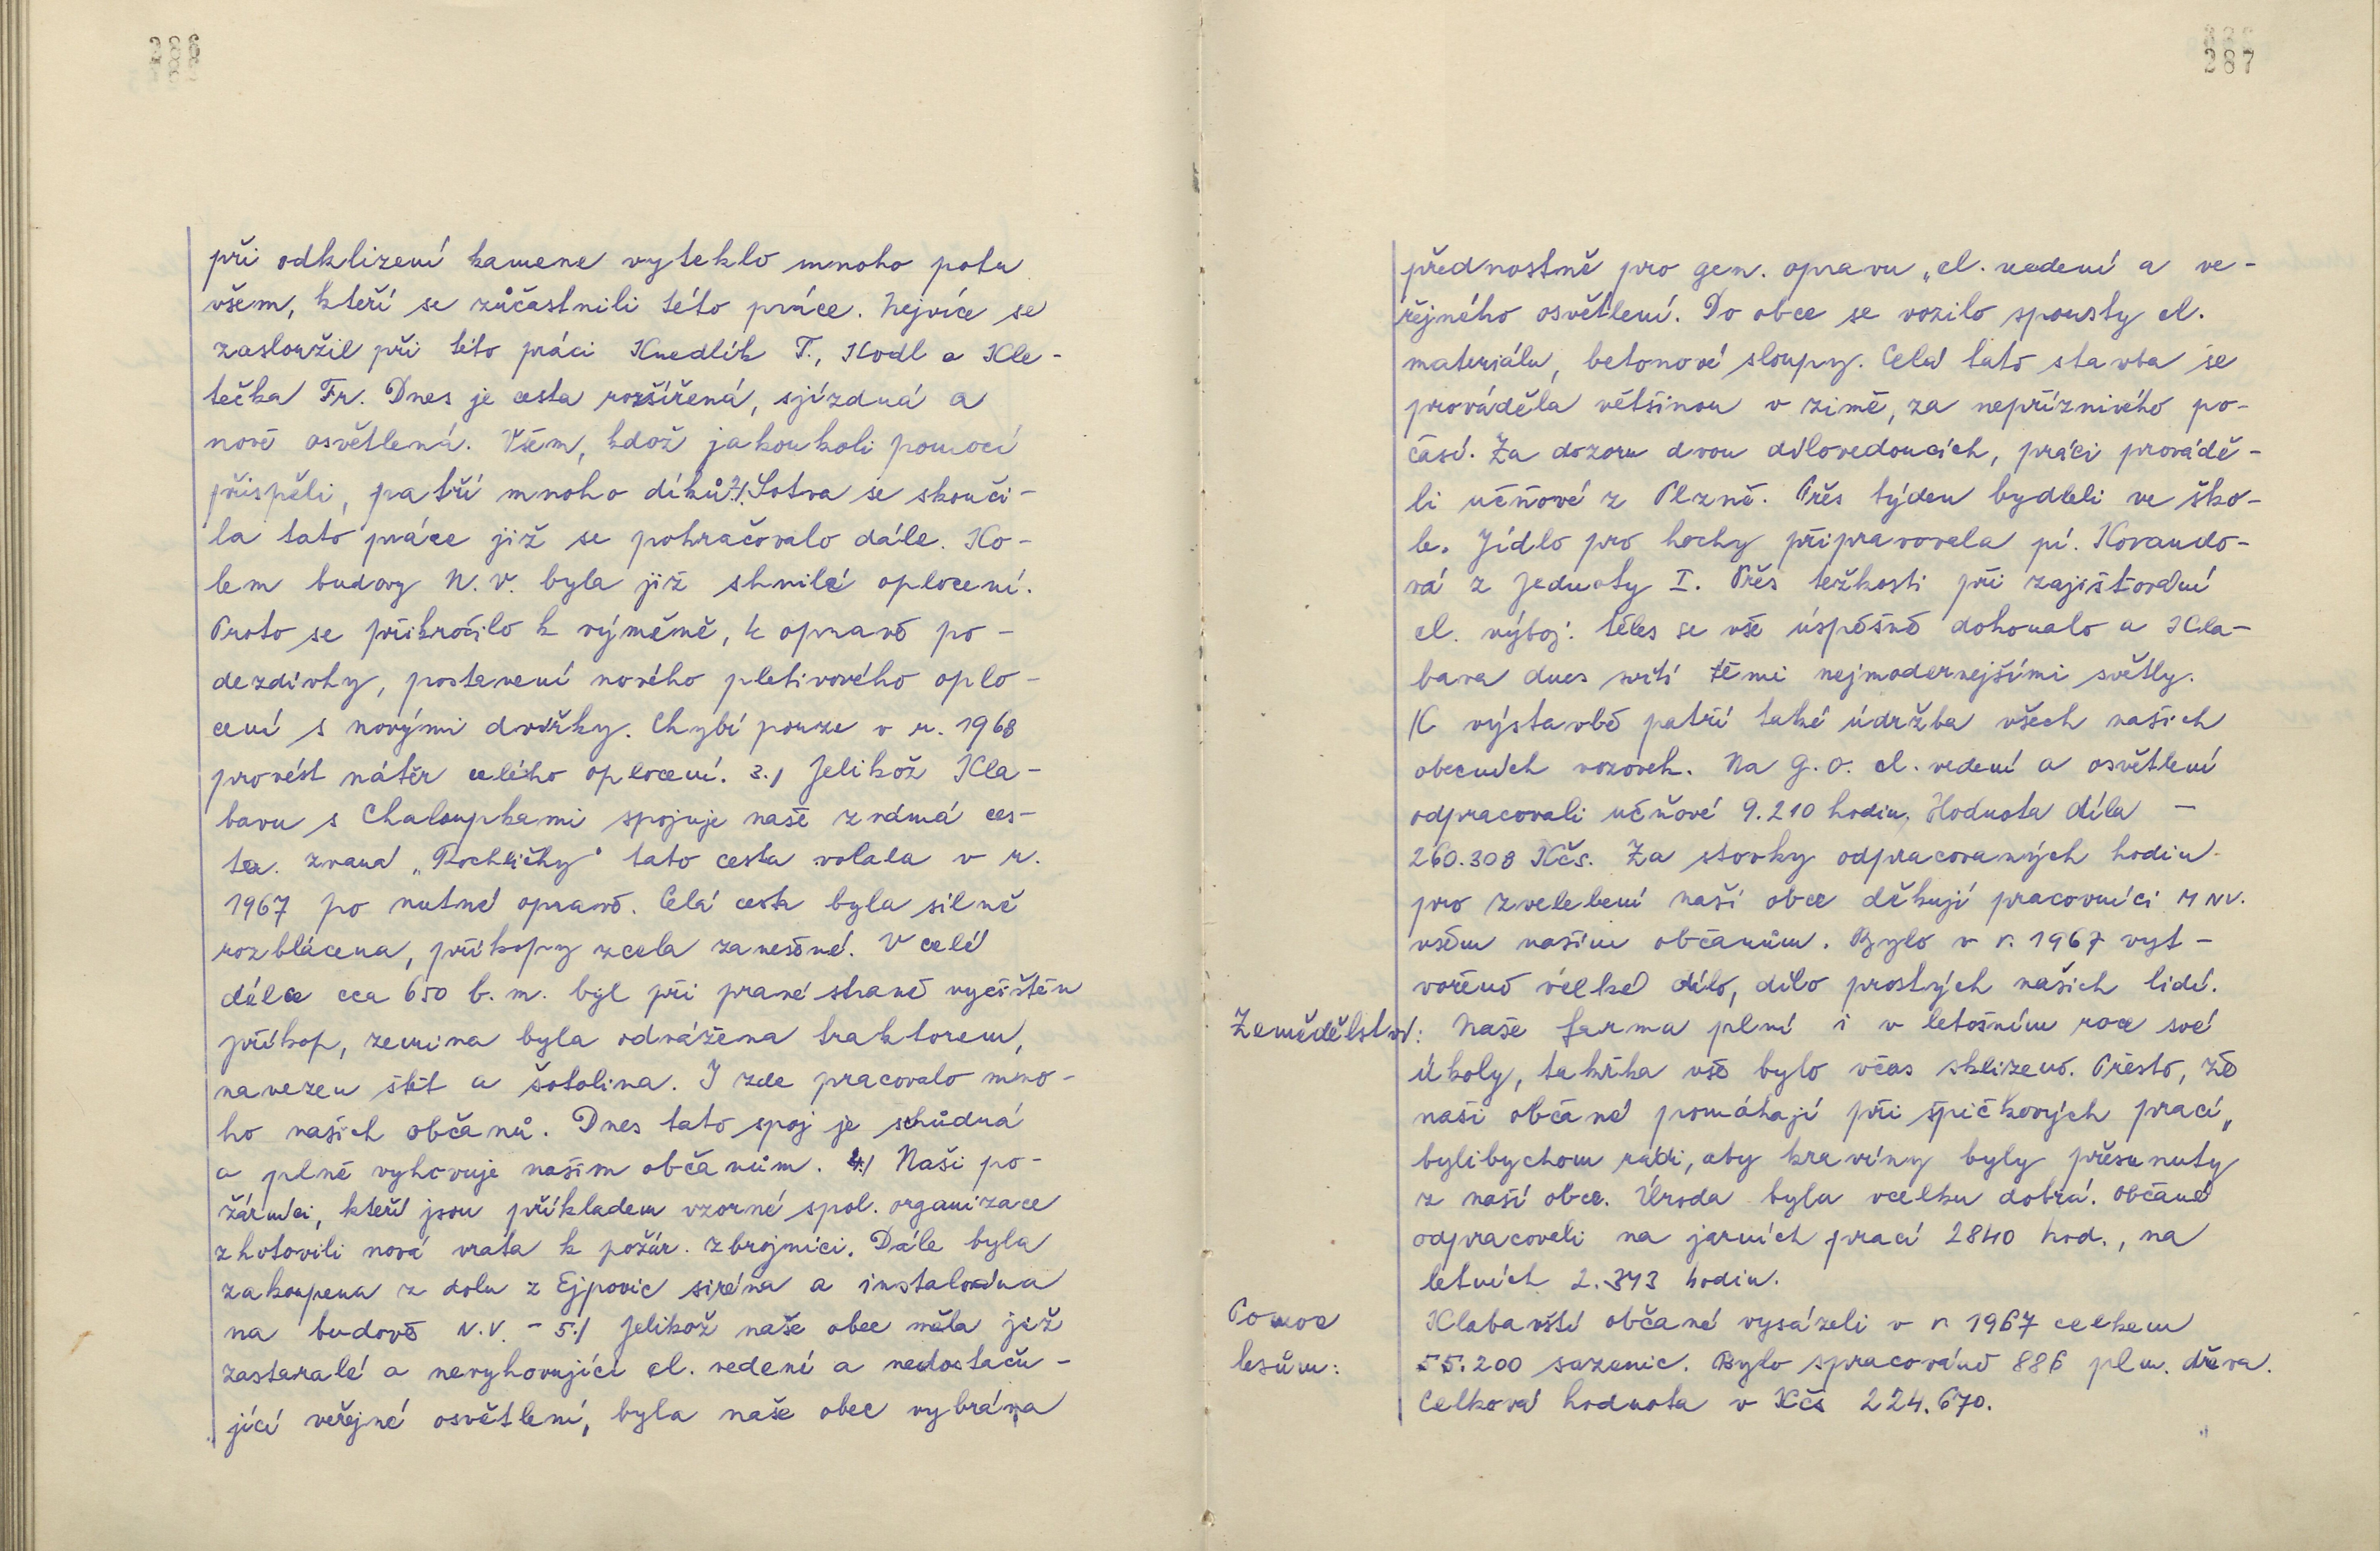 286
při odklizení kamene vyteklo mnoho potu
všem, kteří se zůčastnili této práce. Nejvíce se
zasloužil při této práci Knedlík T., Kodl a Kle-
tečka Fr. Dnes je cesta rozšířená, sjízdná a
nově osvětlená. Všem, kdož jakoukoli pomocí
přispěli, patří mnoho díků. 2./ Sotva se skonči-
la tato práce již se pokračovalo dále. Ko-
lem budovy N.V. byla již shnilé oplocení.
Proto se přikročilo k výměně, k opravě po-
dezdívky, postavení nového pletivového oplo-
cení s novými dvířky. Chybí pouze v r. 1968
provést nátěr celého oplocení. 3./ Jelikož Kla-
bavu s Chaloupkami spojuje naše známá ces-
ta. zvaná „Rochličky" tato cesta volala v r.
1967 po nutné opravě. Celá cesta byla silně
rozblácena, příkopy zcela zanešené. V celé
délce cca 650 b.m. byl při pravé straně vyčištěn
příkop, zemina byla odvážena traktorem,
navezen štět a šotolina. I zde pracovalo mno-
ho našich občanů. Dnes tato spoj je schůdná
a plně vyhovuje našim občanům. 4./ Naši po-
žárníci, kteří jsou příkladem vzorné spol. organizace
zhotovili nová vrata k požár. zbrojnici. Dále byla
zakoupena z dolu z Ejpovic siréna a instalována
na budově N.V. - 5./ Jelikož naše obec měla již
zastaralé a nevyhovující el. vedení a nedostaču-
jící veřejné osvětlení, byla naše obec vybrána
287
přednostně pro gen. opravu „el. vedení a ve-
řejného osvětlení. Do obce se vozilo spousty el.
materiálu, betonové sloupy. Celá tato stavba se
prováděla většinou v zimě, za nepříznivého po-
časí. Za dozoru dvou dílovedoucích, práci provádě-
li učňové z Plzně. Přes týden bydleli ve ško-
le. Jídlo pro hochy připravovala pí. Kovando-
vá z Jednoty I. Přes težkosti při zajišťování
el. výboj. těles se vše úspěšně dokonalo a Kla-
bava dnes svítí těmi nejmodernejšími světly.
K výstavbě patří také údržba všech našich
obecních vozovek. Na g.o. el. vedení a osvětlení
odpracovali učňové 9.210 hodin. Hodnota díla -
260.308 Kčs. Za stovky odpracovaných hodin
pro zvelebení naší obce děkují pracovníci MNV.
všem našim občanům. Bylo v r. 1967 vyt-
vořeno velké dílo, dílo prostých našich lidí.
Zemědělství: Naše farma plní i v letošním roce své
úkoly, takřka vše bylo včas sklizeno. Přesto, že
naši občané pomáhají při špičkových prací,
bylibychom rádi, aby kravíny byly přesunuty
z naší obce. Úroda byla vcelku dobrá. Občané
odpracovali na jarních prací 2840 hod., na
letních 2.343 hodin.
Pomoc Klabavští občané vysázeli v r 1967 celkem
lesům: 55.200 sazenic. Bylo spracováno 886 plm. dřeva.
Celková hodnota v Kčs 224.670.